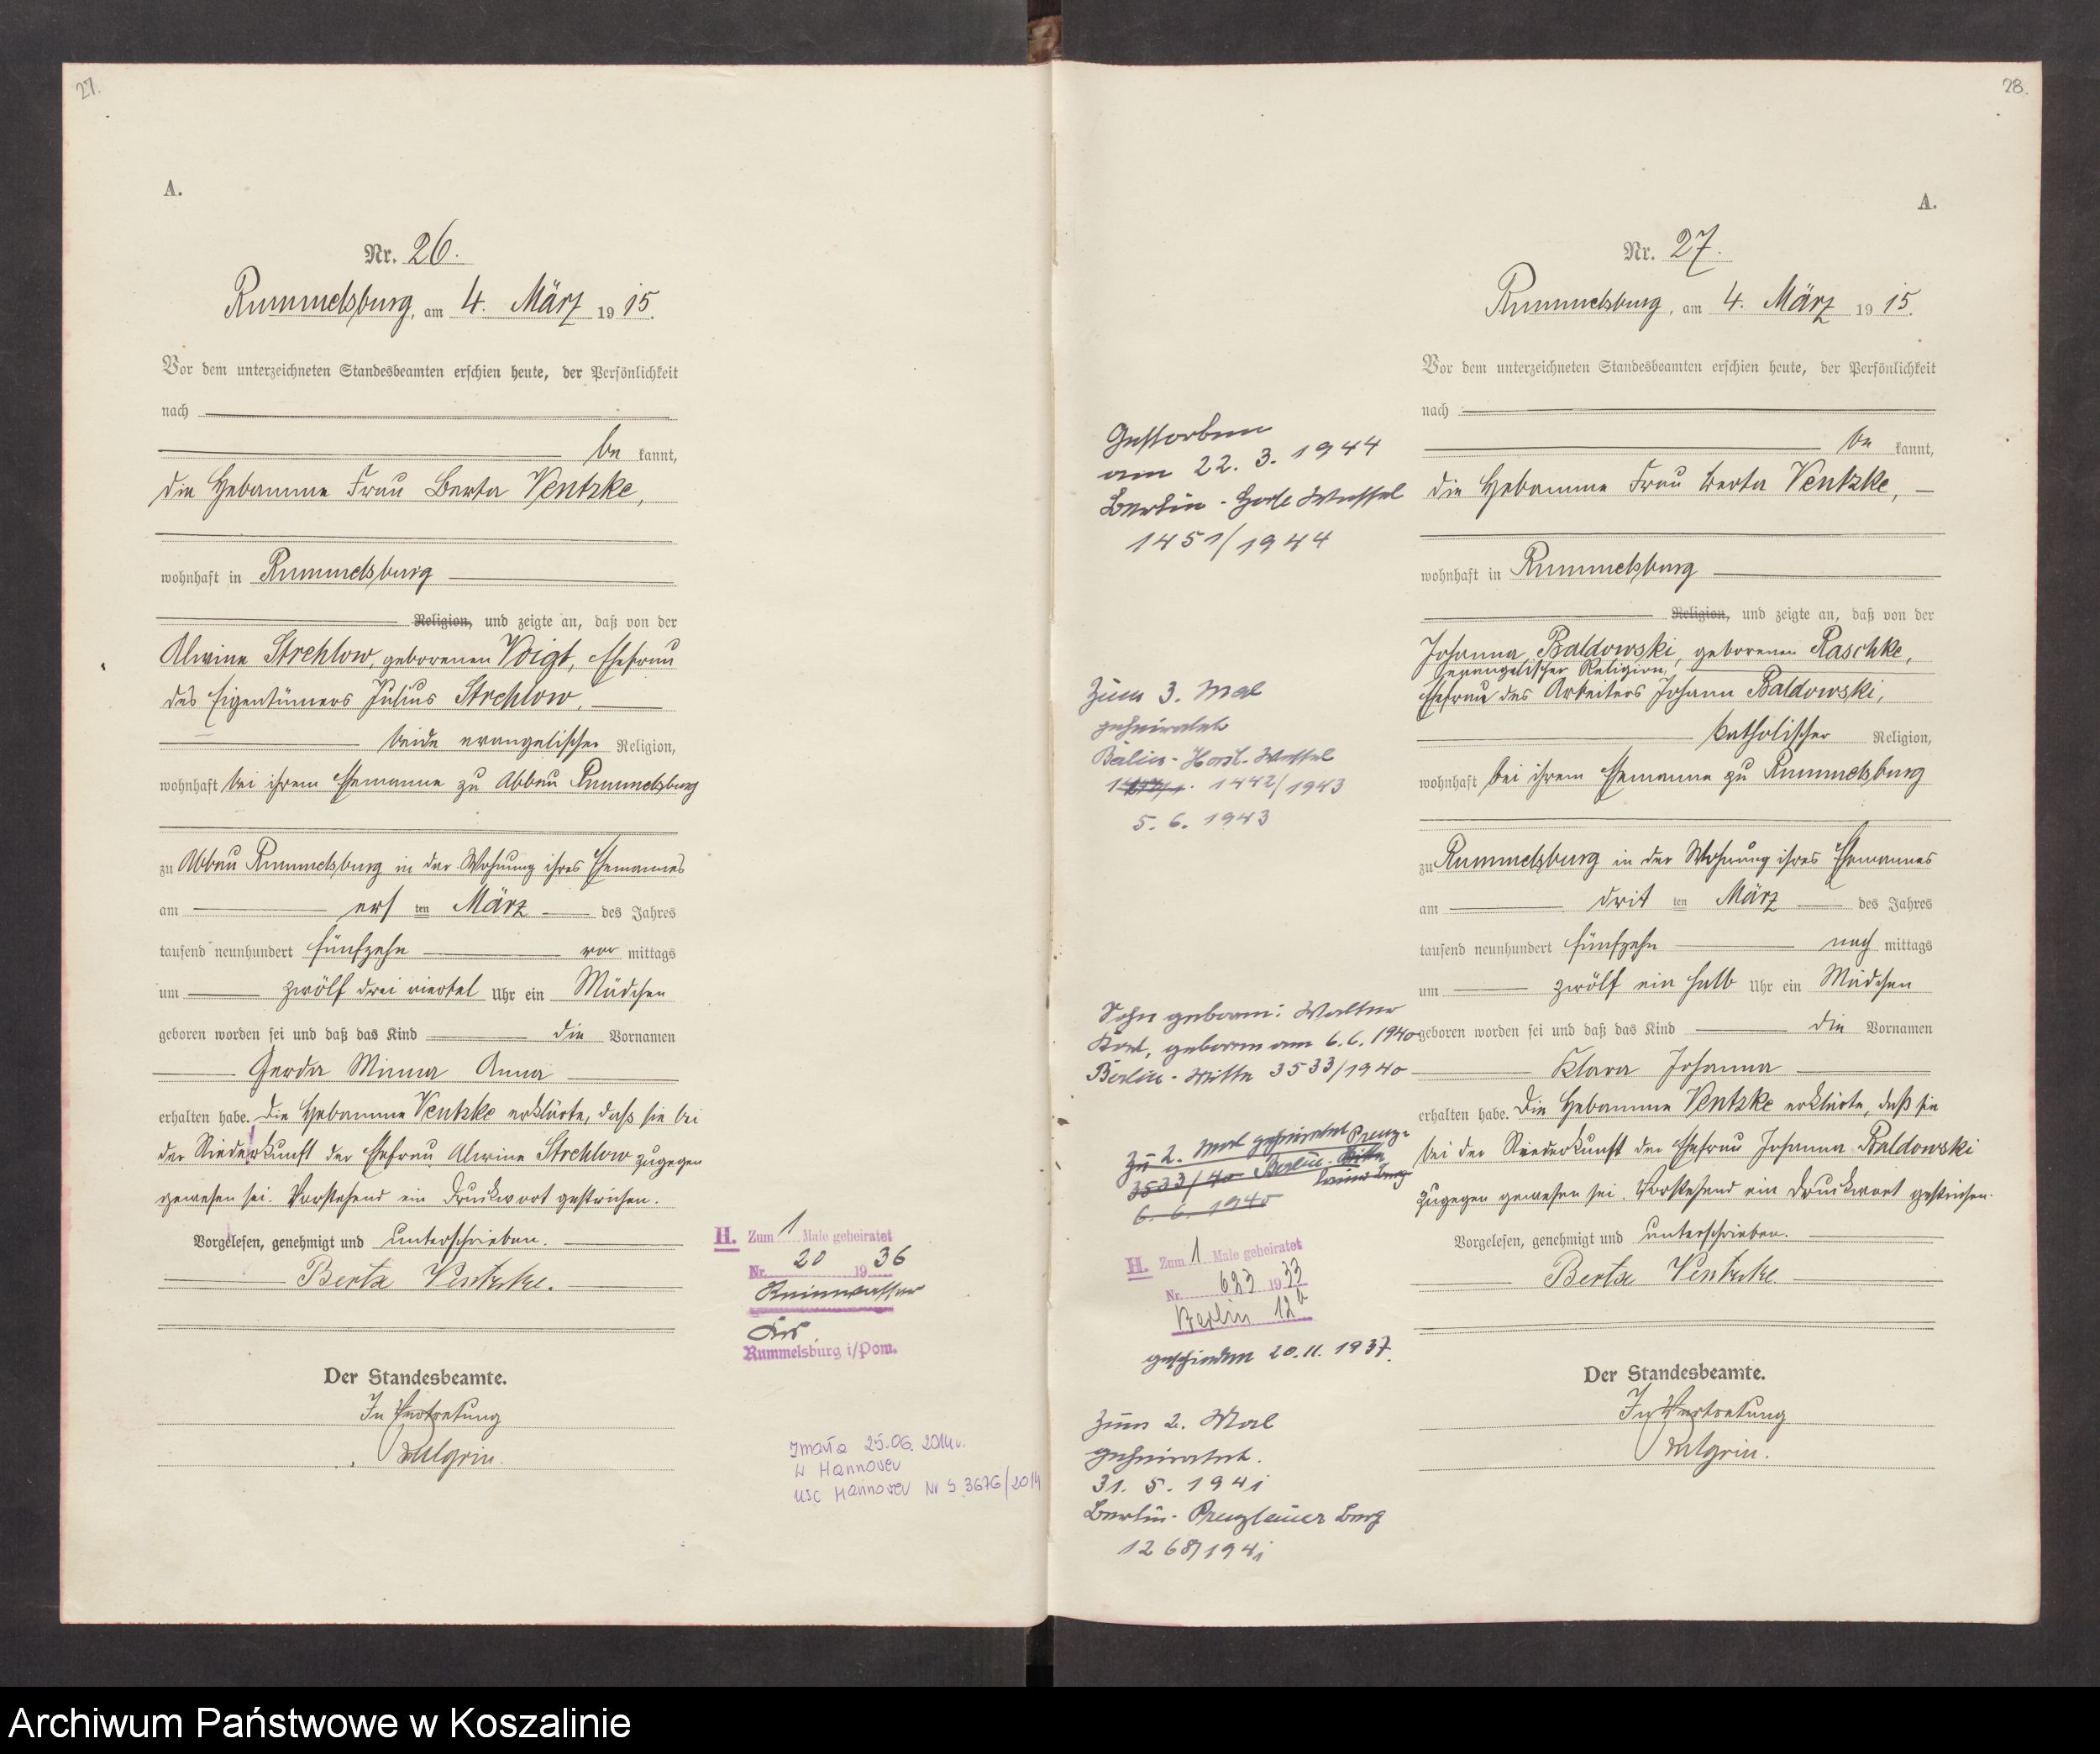 27.
A.
Nr. 26.
Rummelsburg, am 4. März 1915.
Vor dem unterzeichneten Standesbeamten erschien heute, der Persönlichkeit
nach
be kannt,
die Hebamme Frau Berta Ventzke,
wohnhaft in Rummelsburg
Religion, und zeigte an, daß von der
Alwine Strehlow, geborenen Voigt, Ehefrau
des Eigentümers Julius Strehlow,
beide evangelischer Religion,
wohnhaft bei ihrem Ehemanne zu Abbau Rummelsburg
zu Abbau Rummelsburg in der Wohnung ihres Ehemannes
am ersten März des Jahres
tausend neunhundert fünfzehn vor mittags
um zwölf drei viertel Uhr ein Mädchen
geboren worden sei und daß das Kind die Vornamen
Gerda Minna Anna
erhalten habe. Die Hebamme Ventzke erklärte, daß sie bei
der Niederkunft der Ehefrau Alwine Strehlow zugegen
gewesen sei. Vorstehend ein Druckwort gestrichen.
Vorgelesen, genehmigt und unterschrieben.
Berta Ventzke.
Der Standesbeamte.
In Vertretung
H. Zum 1 Male geheiratet
Nr. 20 1936
Reinwasser
Krs.
Rummelsburg i/Pom.
Zmarła 25.06.2014r.
w Hannover
USC Hannover Nr S 3676/2014
28.
A.
Nr. 27.
Rummelsburg, am 4. März 1915.
Vor dem unterzeichneten Standesbeamten erschien heute, der Persönlichkeit
nach
be kannt,
die Hebamme Frau Berta Ventzke,
wohnhaft in Rummelsburg
Religion, und zeigte an, daß von der
Johanna Baldowski, geborenen Raschke,
evangelischer Religion,
Ehefrau des Arbeiters Johann Baldowski,
katholischer Religion,
wohnhaft bei ihrem Ehemanne zu Rummelsburg
zu Rummelsburg in der Wohnung ihres Ehemannes
am dritten März des Jahres
tausend neunhundert fünfzehn nach mittags
um zwölf ein halb Uhr ein Mädchen
geboren worden sei und daß das Kind die Vornamen
Klara Johanna
erhalten habe. Die Hebamme Ventzke erklärte, daß sie
bei der Niederkunft der Ehefrau Johanna Baldowski
zugegen gewesen sei. Vorstehend ein Druckwort gestrichen.
Vorgelesen, genehmigt und unterschrieben.
Berta Ventzke
Der Standesbeamte.
In Vertretung
Gestorben
am 22. 3. 1944
Berlin - Horst Wessel
1451/1944
Zum 3. Mal
geheiratet
Berlin - Horst - Wessel
1442/1943
5. 6. 1943
Sohn geboren: Walter
geboren am 6.6.1940
Berlin - Mitte 3533/1940
Zum 2. Mal geheiratet Prenz-
3533/40 Berlin - Mitte
lauer Berg
6. 6. 1940
H. Zum 1 Male geheiratet
Nr. 623 1933
Berlin 12b
geschieden 20.11.1937.
Zum 2. Mal
geheiratet.
31. 5. 1941
Berlin - Prenzlauer Berg
1268/1941
Archiwum Państwowe w Koszalinie